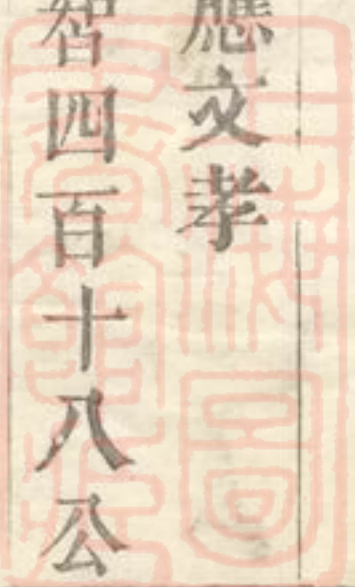 應文孝
智四百十八公